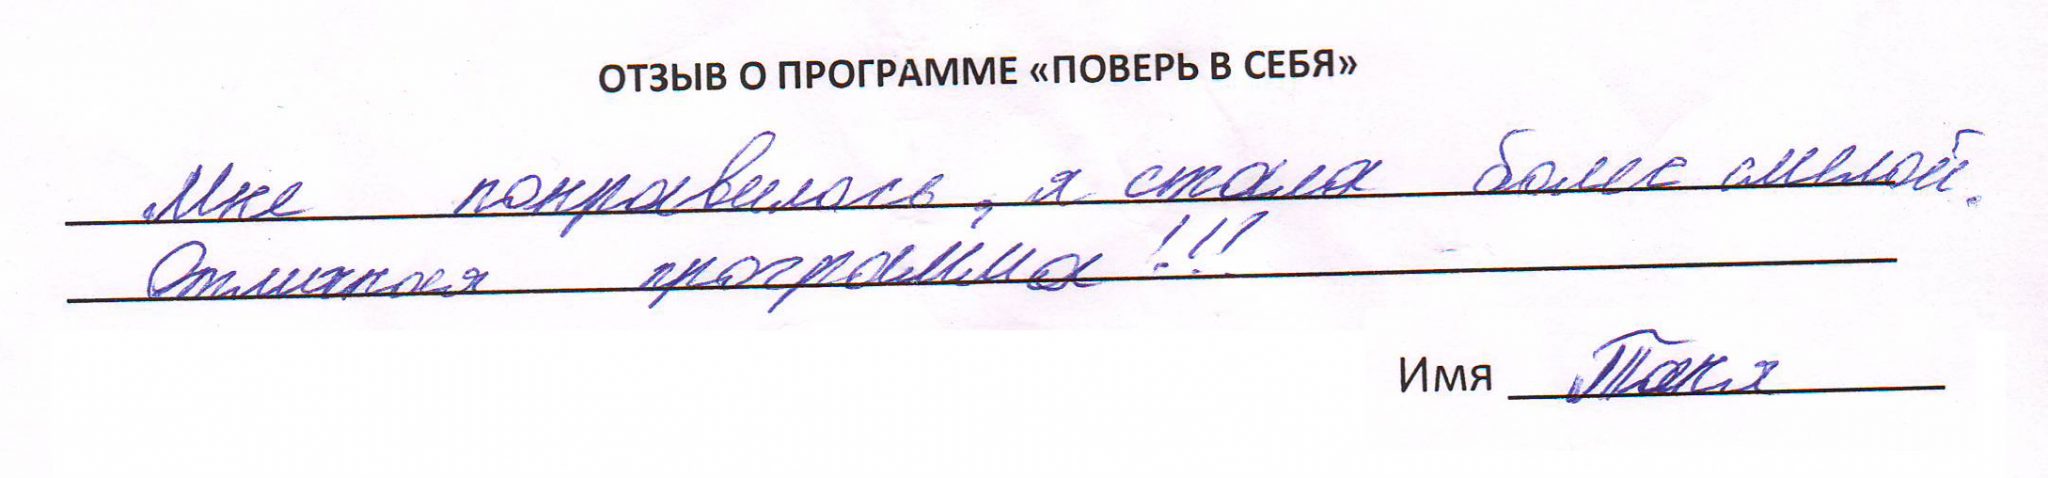 ОТЗЫВ О ПРОГРАММЕ «ПОВЕРЬ В СЕБЯ»
Мне понравилось, я стала более смелой.
Отличная программа!!!
Имя Таня